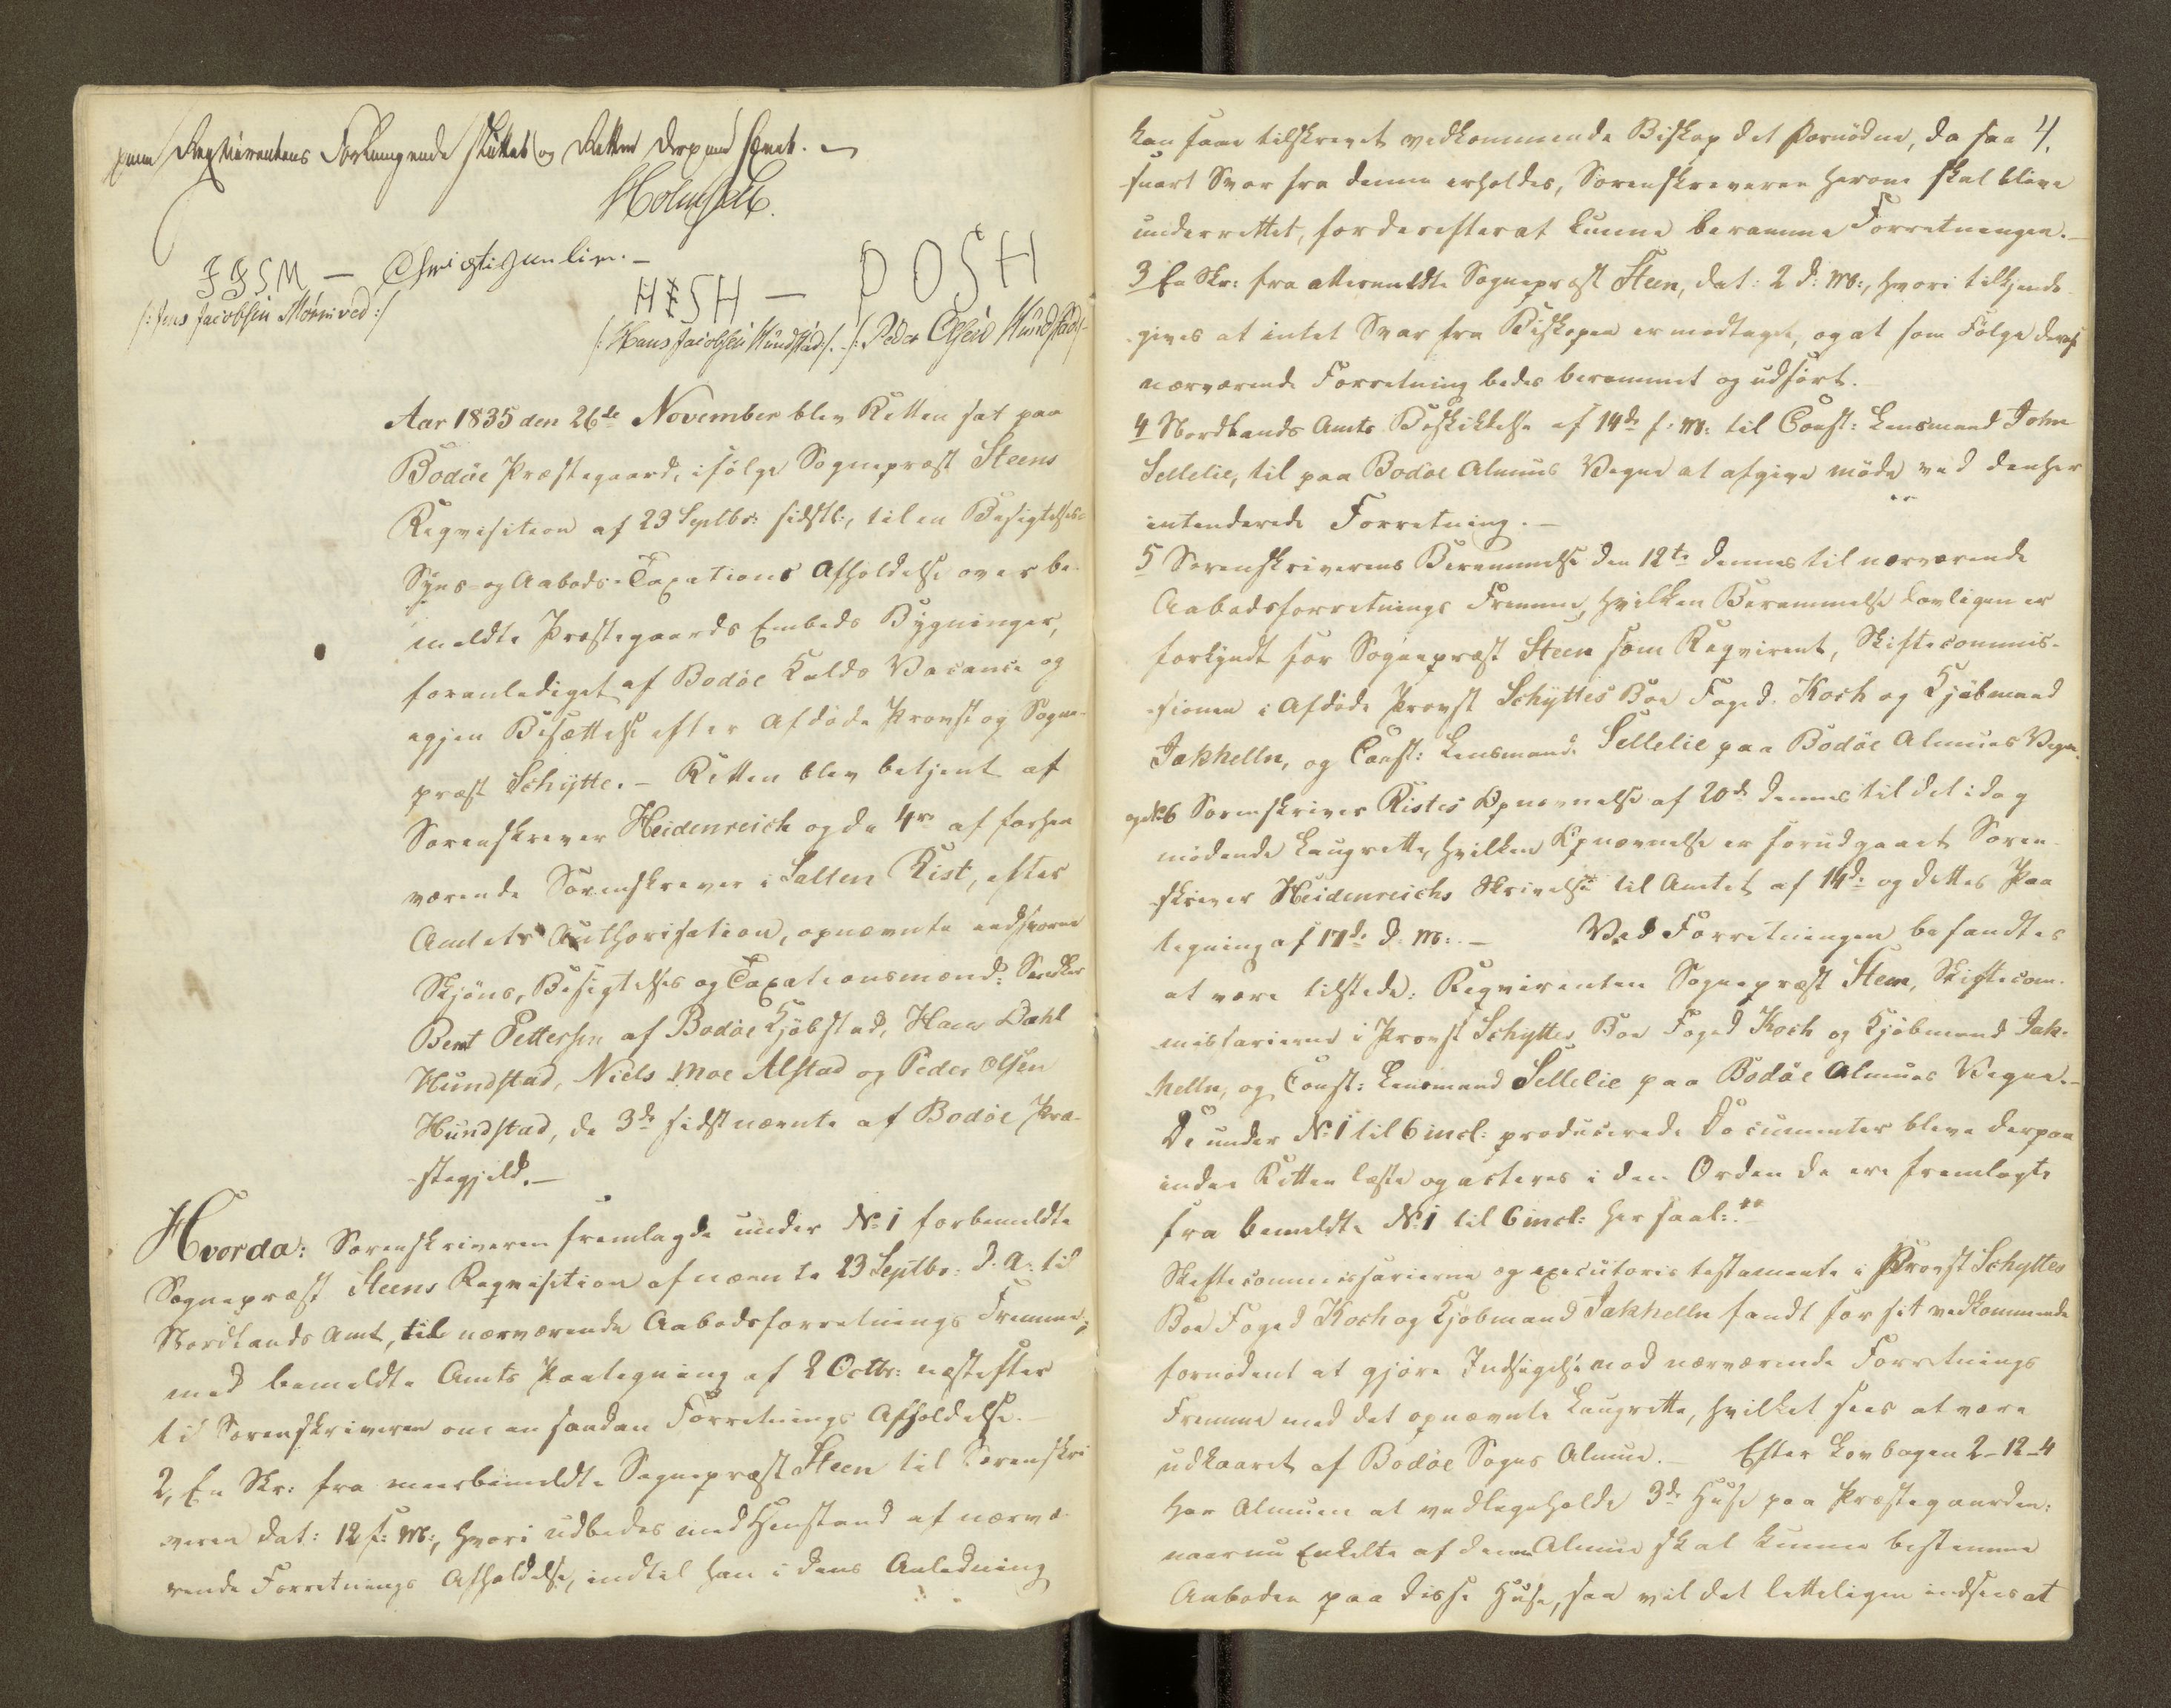 paa Reqvirentens Forlangende sluttet og Retten derpaa hævet. –
Holmsen
JJSM – Christi Gunlien. –
/: Jens Jacobsen Mørnived :/
HISH – POSH
/: Hans Jacobsen Hundstad :/ – /: Peder Olsen Hundstad :/
Aar 1835 den 26de November blev Retten sat paa
Bodöe Præstegaard, ifölge Sognepræst Steens
Reqvisition af 23 Septbr: sidstl:, til en Besigtelses-
Syns- og Aabods-Taxations Afholdelse over be-
meldte Præstegaards Embeds Bygninger,
foranlediget af Bodöe Kalds Vacance og
egjen Besættelse efter Afdöde Provst og Sogne-
præst Schytte. – Retten blev betjent af
Sorenskriver Heidenreich og de 4re af forhen
værende Sorenskriver i Salten Rist, efter
Amtets Authorisation, opnævnte eedsvorne
Skjöns, Besigtelses og Taxationsmænd: Snedker
Bent Pettersen af Bodöe Kjöbstad, Hans Dahl
Hundstad, Niels Moe Alstad og Peder Olsen
Hundstad, de 3de sidstnævnte af Bodöe Præ-
stegjeld. –
Hvorda: Sorenskriveren fremlagde under No 1 forbemeldte
Sognepræst Steens Reqvisition af nævnte 23 Septbr: d. A: til
Nordlands Amt, til nærværende Aabodsforretnings Fremme,
med bemeldte Amts Paategning af 2 Octbr: næstefter
til Sorenskriveren om en saadan Forretnings Afholdelse. –
2, En Skr: fra meerbemeldte Sognepræst Steen til Sorenskri
veren dat: 12 f: M:, hvori udbedes med Henstand af nærvæ-
rende Forretnings Afholdelse, indtil han i dens Anledning
4.
kan faae tilskrevet vedkommende Biskop det Fornödne, da saa
snart Svar fra denne erholdes, Sorenskriveren herom skal blive
underrettet, for derefter at kunne beramme Forretningen. –
3 En Skr: fra attermeldte Sognepræst Steen, dat: 2 d: M:, hvori tilkjende
gives at intet Svar fra Biskopen er modtaget, og at som Fölge deraf
nærværende Forretning bedes berammet og udfört.
4 Nordlands Amts Beskikkelse af 14de f: M: til Const: Lensmand John
Sellelie, til paa Bodöe Almues Vegne at afgive möde ved denher
intenderede Forretning. –
5 Sorenskriverens Berammelse den 12te dennes til nærværende
Aabodsforretnings Fremme, hvilken Berammelse lovligen er
forkyndt for Sognepræst Steen som Reqvirent, Skiftecommis-
sionen i Afdöde Provst Schyttes Boe Foged Koch og Kjöbmand
Jakhelln, og Const: Lensmand Sellelie paa Bodöe Almues Vegne.
og No 6 Sorenskriver Ristes Opnævnelse af 20de dennes til det i dag
mödende Laugrette, hvilken Opnævnelse er forudgaaet Soren-
skriver Heidenreichs Skrivelse til Amtet af 14de og dettes Paa
tegning af 17de d. M: – Ved Forretningen befandtes
at være tilstede: Reqvirenten Sognepræst Steen, Skiftecom-
missarierne i Provst Schyttes Boe Foged Koch og Kjöbmand Jak-
helln, og Const: Lensmand Sellelie paa Bodöe Almues Vegne. –
De under No 1 til 6 incl: producerede Documenter bleve derpaa
inden Retten læste og acteres i den Orden de ere fremlagte
fra bemeldte No 1 til 6 incl: her saal:
Skiftecommissarierne og executoris testamente i Provst Schyttes
Boe Foged Koch og Kjöbmand Jakhelln fandt for sit vedkommende
fornödent at gjöre Indsigelse mod nærværende Forretnings
Fremme med det opnævnte Laugrette, hvilket sees at være
udkaaret af Bodöe Sogns Almue. – Efter Lovbogen 2–12–4
har Almuen at vedligeholde 3de Huse paa Præstegaarden:
naar nu Enkelte af denne Almue skal kunne bestemme
Aaboden paa disse Huse, saa vil det letteligen indsees at